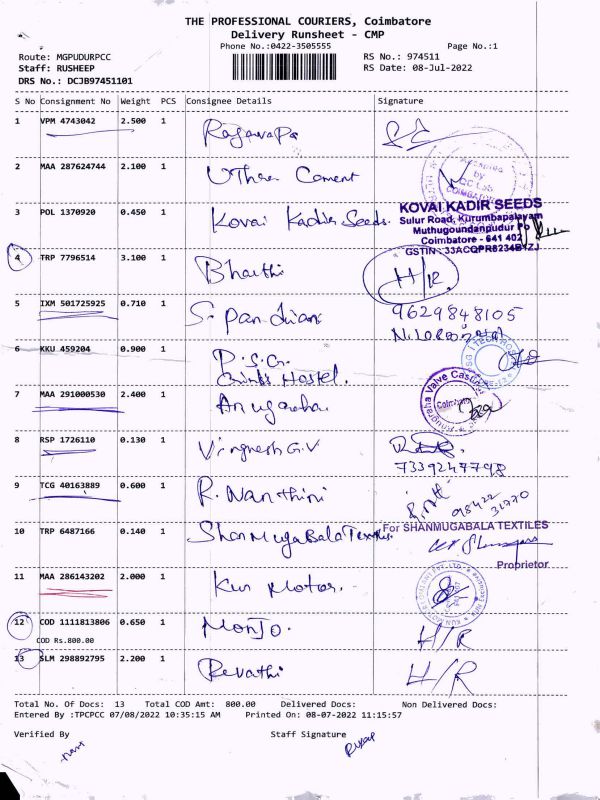 THE PROFESSIONAL COURIERS, Coimbatore
Delivery Runsheet - CMP
Phone No.:0422-3505555 Page No.:1
Route: MGPUDURPCC RS No.: 974511
Staff: RUSHEEP RS Date: 08-Jul-2022
DRS No.: DCJB97451101
S No Consignment No Weight PCS Consignee Details Signature
1 VPM 4743042 2.500 1
2 MAA 287624744 2.100 1 UThra Cement
3 POL 1370920 0.450 1 Kovai Kadir Seeds.
KOVAI KADIR SEEDS
Sulur Road, Kurumbapalayam
Muthugoundanpudur Po
Coimbatore - 641 402
4 TRP 7796514 3.100 1 Bharthi H/R
5 IXM 501725925 0.710 1 S. pandian 9629848105
6 KKU 459204 0.900 1 P.S.G.
Girls Hostel.
7 MAA 291000530 2.400 1 Anugraha.
Anugraha Valve Castings
8 RSP 1726110 0.130 1 Vignesh G.V
7339247798
9 TCG 40163889 0.600 1 R. Nanthini 98422 31770
10 TRP 6487166 0.140 1 ShanMugaBala Textiles
For SHANMUGABALA TEXTILES
Proprietor
11 MAA 286143202 2.000 1 Kun Motor.
12 COD 1111813806 0.650 1 MonJo. H/R
COD Rs.800.00
13 SLM 298892795 2.200 1 Revathi H/R
Total No. Of Docs: 13 Total COD Amt: 800.00 Delivered Docs: Non Delivered Docs:
Entered By :TPCPCC 07/08/2022 10:35:15 AM Printed On: 08-07-2022 11:15:57
Verified By Staff Signature